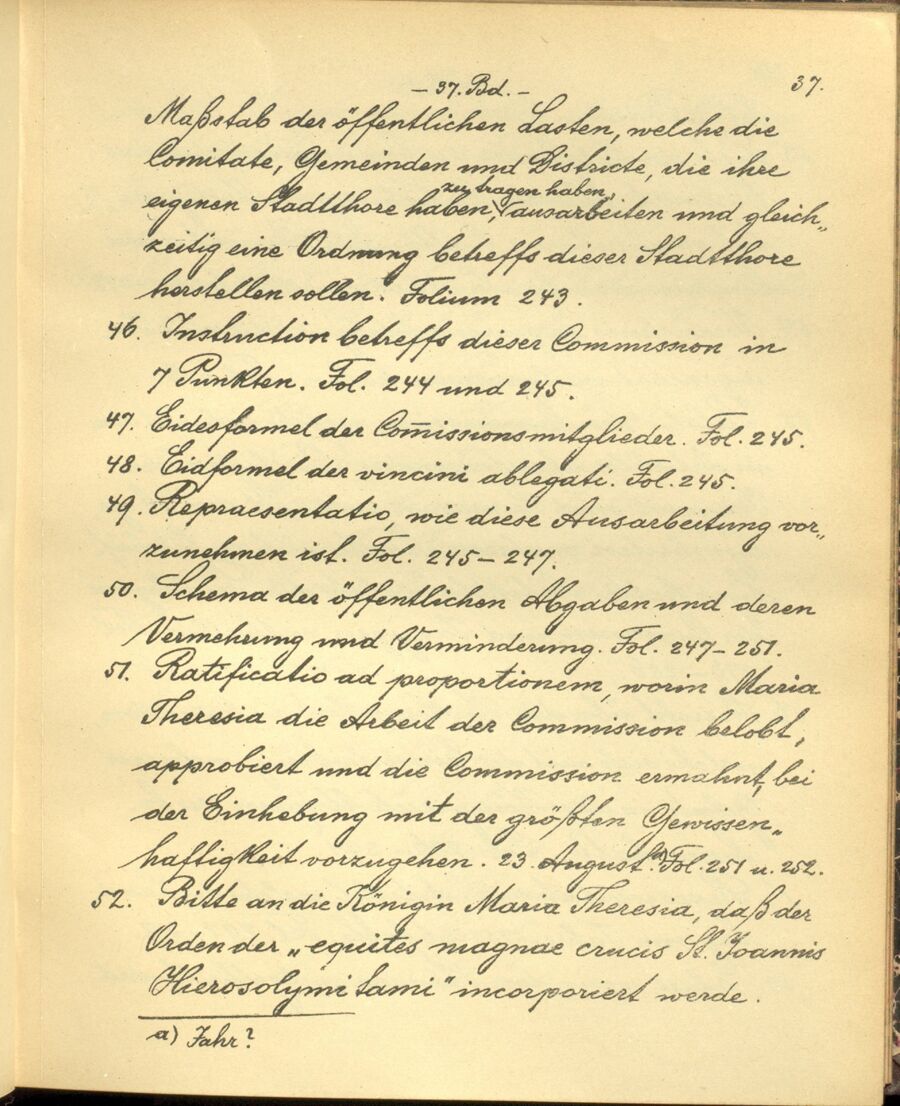 — 37. Bd. —
37.
Maßstab der öffentlichen Lasten, welche die
Comitate, Gemeinden und Districte, die ihre
zu tragen haben,
eigenen Stadtthore haben, ausarbeiten und gleich„
zeitig eine Ordnung betreffs dieser Stadtthore
herstellen sollen. Folium 243.
46. Instruction betreffs dieser Commission in
7 Punkten. Fol. 244 und 245.
47. Eidesformel der Com̄issionsmitglieder. Fol. 245.
48. Eidformel der vincini ablegati. Fol. 245.
49. Repraesentatio, wie diese Ausarbeitung vor„
zunehmen ist. Fol. 245 – 247.
50. Schema der öffentlichen Abgaben und deren
Vermehrung und Verminderung. Fol. 247 – 251.
51. Ratificatio ad proportionem, worin Maria
Theresia die Arbeit der Commission belobt,
approbiert und die Commission ermahnt, bei
der Einhebung mit der größten Gewissen„
haftigkeit vorzugehen. 23. August.a) Fol. 251 u. 252.
52. Bitte an die Königin Maria Theresia, daß der
Orden der „equites magnae crucis St. Joannis
Hierosolymitami" incorporiert werde.
a) Jahr?